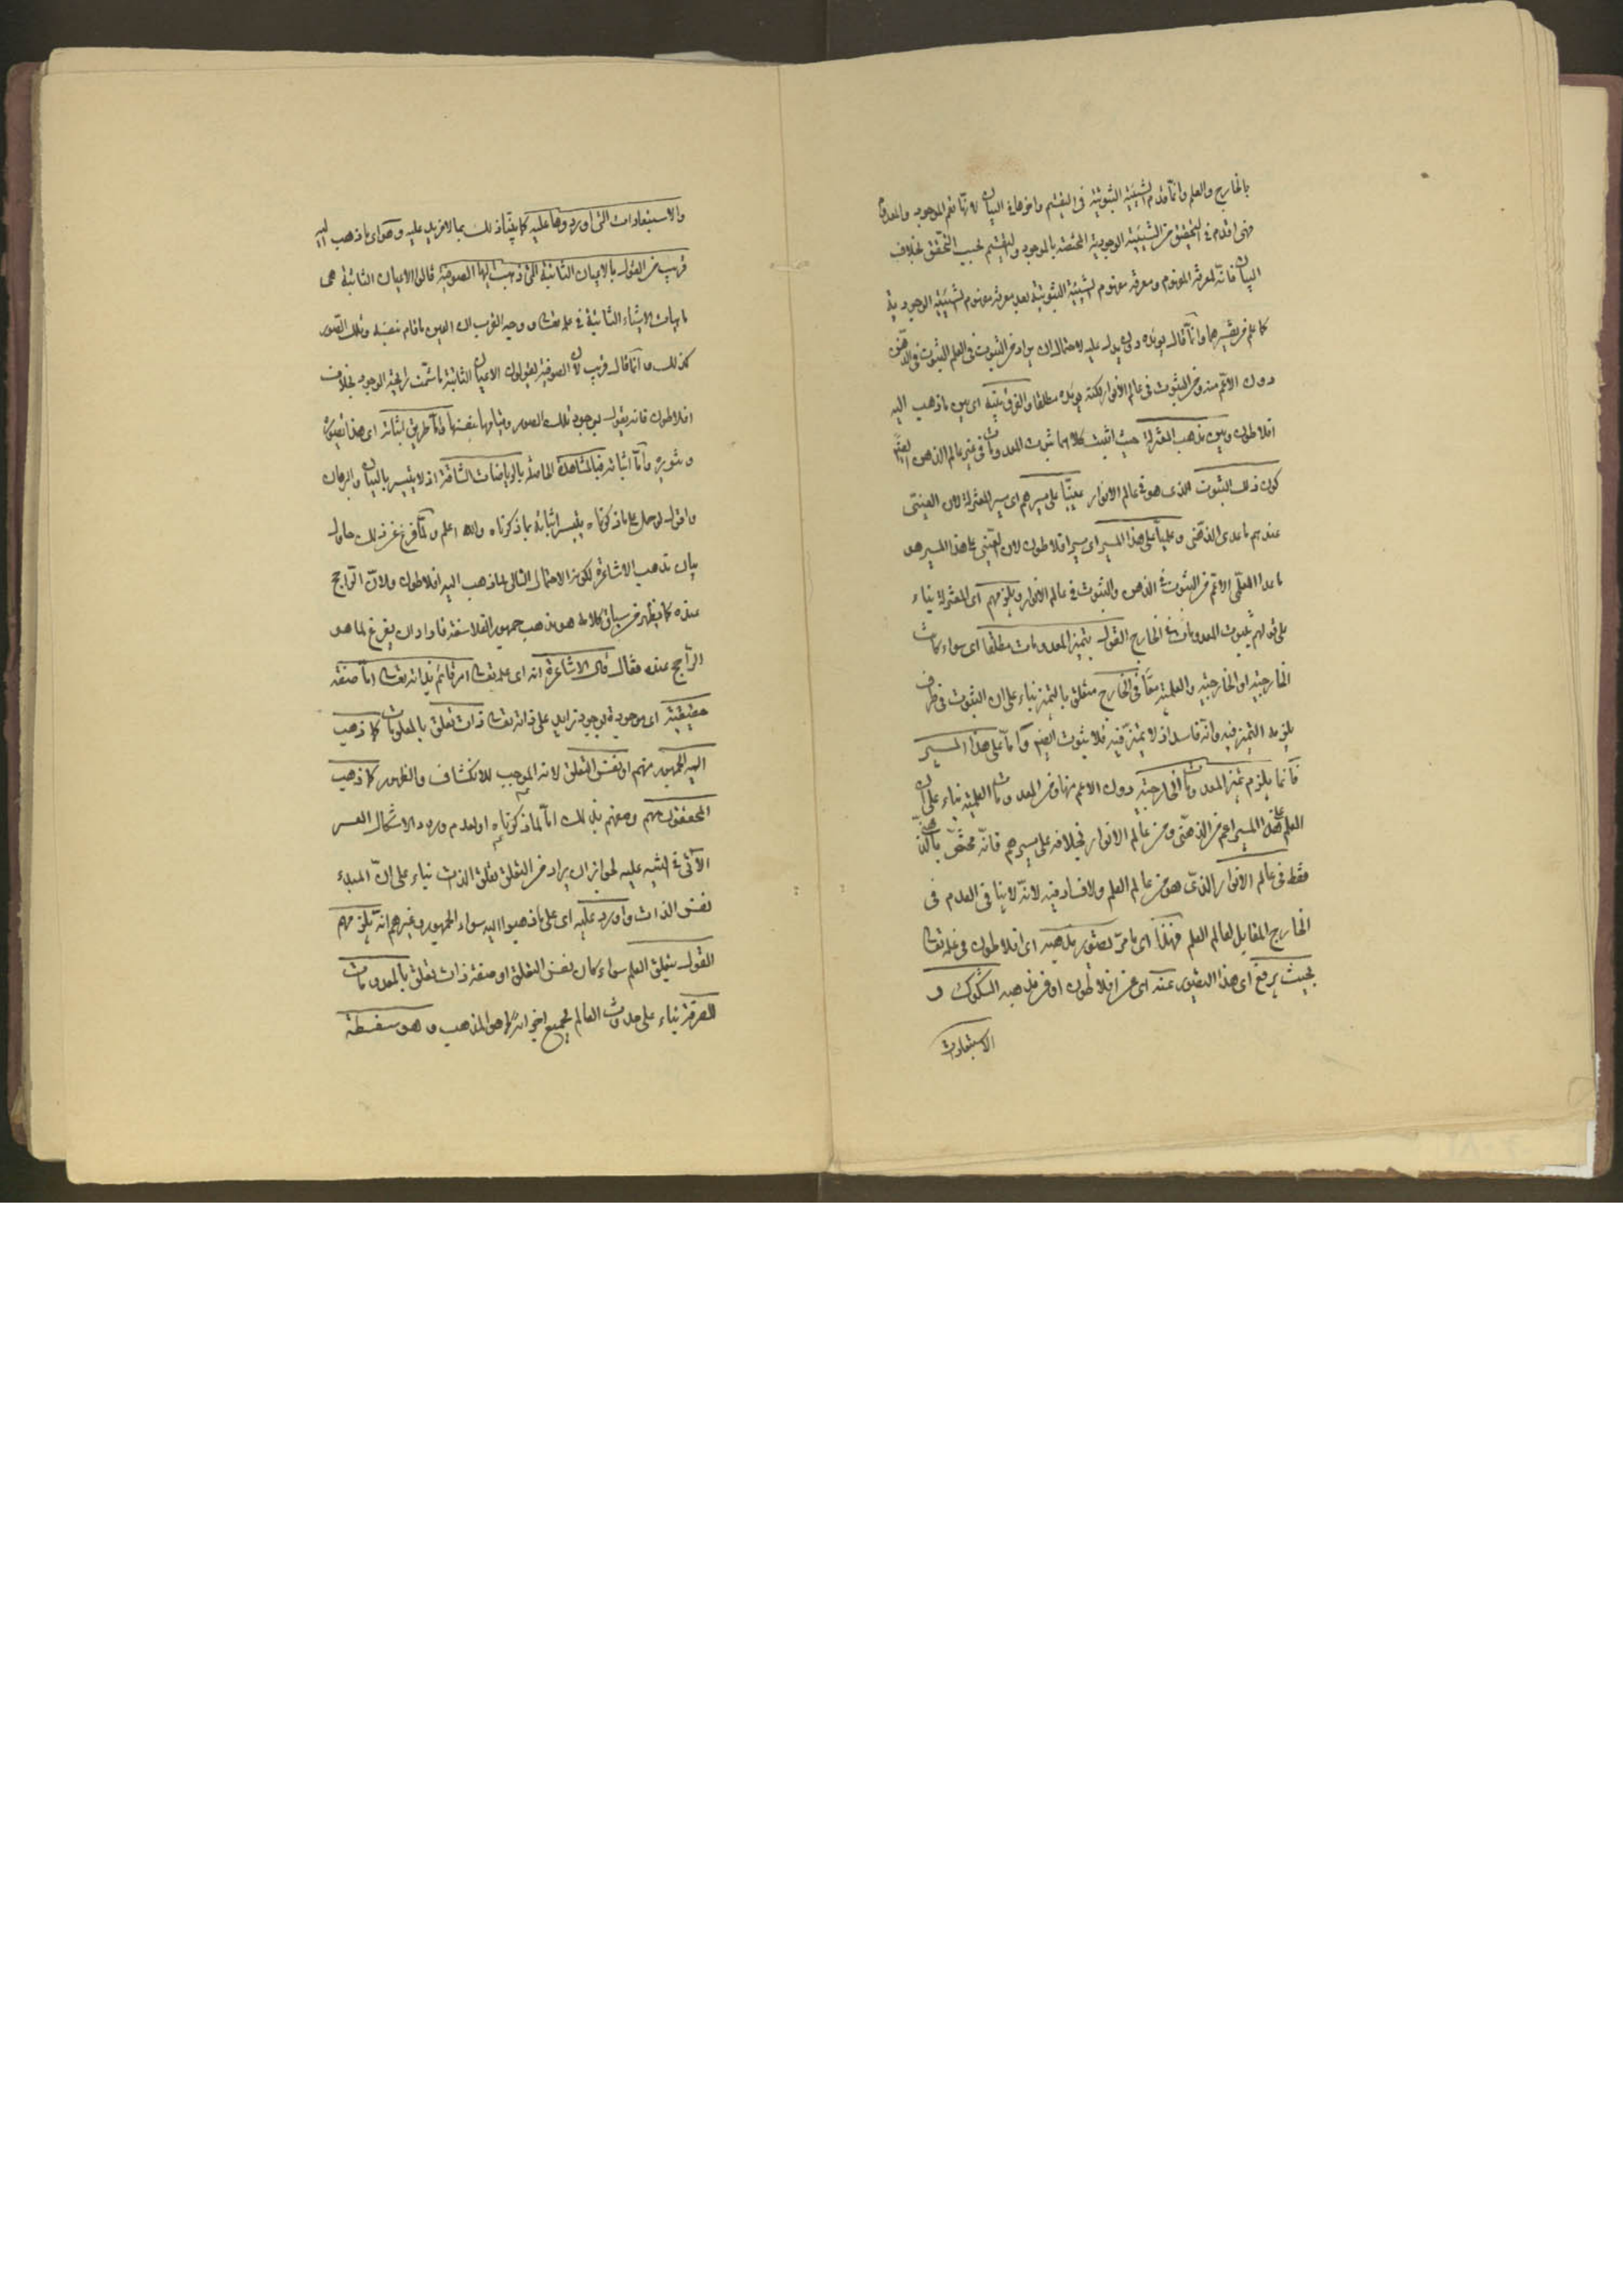 بالخارج والعلم وانما قدم الشيئية الثبوتية فى التقسيم واخرها فى البيان لانها تعم الموجود والمعدوم
فهى اقدم فى التحقق من الشيئية الوجودية المختصة بالموجود والتقسيم بحسب التحقق بخلاف
البيان فانه لمعرفة المفهوم ومعرفة مفهوم الشيئية الثبوتية بعد معرفة مفهوم الشيئية الوجودية
كما علم من تفسيرهما وانما قال يؤيده ولم يدل عليه لاحتمال ان يراد من الثبوت فى العلم الثبوت فى الذهن
دون الاعم منه ومن الثبوت فى عالم الانوار لكنه يؤيده مطلقا والفرق بينه اى بين ما ذهب اليه
افلاطون وبين مذهب المعتزلة حيث اثبت كلاهما ثبوت المعدومات فى غير عالم الذهن
كون ذلك الثبوت الذى هو فى عالم الانوار عينيا على سيرهم اى سير المعتزلة لان العينى
عندهم ما عدى الذهنى وعلميا على هذا السير اى سير افلاطون لان العينى على هذا السير هو
ما عدا العلمى الاعم من الثبوت فى الذهن والثبوت فى عالم الانوار ويلزمهم اى المعتزلة بناء
على قولهم بثبوت المعدومات فى الخارج القول بتميز المعدومات مطلقا اى سواء كانت
الخارجية او الخارجية والعلمية معا فى الخارج متعلق بالتميز بناء على ان الثبوت فى ظرف
يلزمه التميز فيه وانه فاسد اذ لا تميز فيه فلا ثبوت ايضا واما على هذا السير
فانما يلزم تميز المعدومات الخارجية دون الاعم منها ومن المعدومات العلمية بناء على ان
العلم على هذا السير اعم من الذهنى ومن عالم الانوار بخلافه على سيرهم فانه مختص بالذهن
فقط فى عالم الانوار الذى هو من عالم العلم ولا فساد فيه لانه لا ينافى العدم فى
الخارج المقابل لعالم العلم فهذا اى ما مر تصوير مذهبه اى افلاطون فى علمه تعالى
بحيث يرفع اى هذا التصوير عنه اى عن افلاطون او من مذهبه الشكوك و
الاستبعادات
والاستبعادات التى اوردوها عليه كما بينا ذلك بما لا مزيد عليه وهو اى ما ذهب اليه
قريب من القول بالاعيان الثابتة التى ذهبت اليها الصوفية قالوا الاعيان الثابتة هى
ماهيات الاشياء الثابتة فى علمه تعالى ووجه القرب ان العين ما قام بنفسه وتلك الصور
كذلك وانما قال قريب لان الصوفية يقولون الاعيان الثابتة ما شمت رايحة الوجود بخلاف
افلاطون فانه يقول بوجود تلك الصور وقيامها بنفسها واما طريق اثباته اى هذا تصويره
وتنويره واما اثباته فبالمشاهدة الحاصلة بالرياضات الشاقة اذ لا يتيسر بالبيان والبرهان
واقول لو حمل على ما ذكرناه يتيسر اثباته بما ذكرناه والله اعلم ولما فرغ عن ذلك حاول
بيان مذهب الاشاعرة لكونه الاحتمال التالى لما ذهب اليه افلاطون ولان الراجح
عنده كما يظهر من سياق كلامه هو مذهب جمهور الفلاسفة فاراد ان يفرغ لما هو
الراجح عنده فقال قال الاشاعرة انه اى علمه تعالى امر قائم بذاته تعالى اما صفة
حقيقية اى موجودة بوجود زايد على ذاته تعالى ذات تعلق بالمعلومات كما ذهب
اليه الجمهور منهم او نفس التعلق لانه الموجب للانكشاف والظهور كما ذهب
المحققون منهم وصفهم بذلك اما لما ذكرناه او لعدم ورود الاشكال العسر
الآتى فى الشبه عليه لجواز ان يراد من التعلق تعلق الذات بناء على ان المبدء
نفس الذات واورد عليه اى على ما ذهبوا اليه سواء الجمهور وغيرهم انه يلزمهم
القول بتعلق العلم سواء كان نفس التعلق او صفة ذات تعلق بالمعدومات
الصرفة بناء على حدوث العالم بجميع اجزائه كما هو المذهب وهو سفسطة